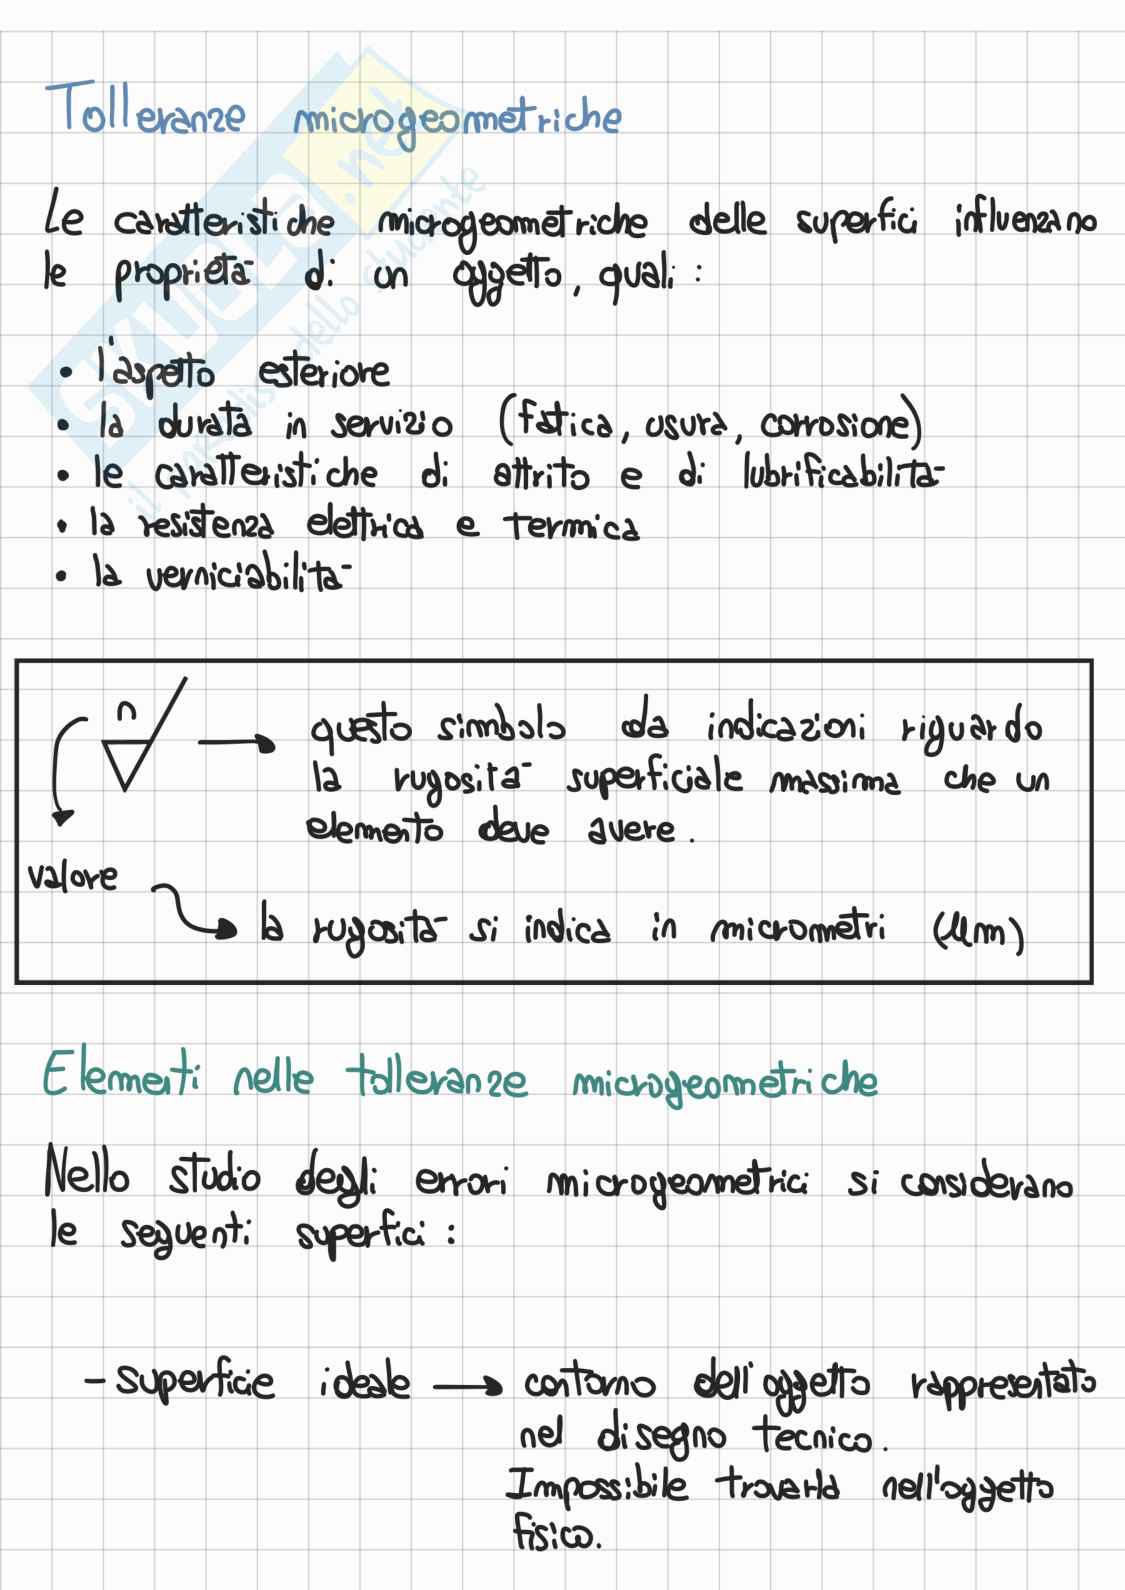 Tolleranze microgeometriche
Le caratteristiche microgeometriche delle superfici influenzano
le proprietà di un oggetto, quali:
• l'aspetto esteriore
• la durata in servizio (fatica, usura, corrosione)
• le caratteristiche di attrito e di lubrificabilità
• la resistenza elettrica e termica
• la verniciabilità
n
questo simbolo da indicazioni riguardo
la rugosità superficiale massima che un
elemento deve avere.
valore
la rugosità si indica in micrometri (μm)
Elementi nelle tolleranze microgeometriche
Nello studio degli errori microgeometrici si considerano
le seguenti superfici:
- superficie ideale → contorno dell'oggetto rappresentato
nel disegno tecnico.
Impossibile trovarla nell'oggetto
fisico.
SKUOLA.net
il dello studente